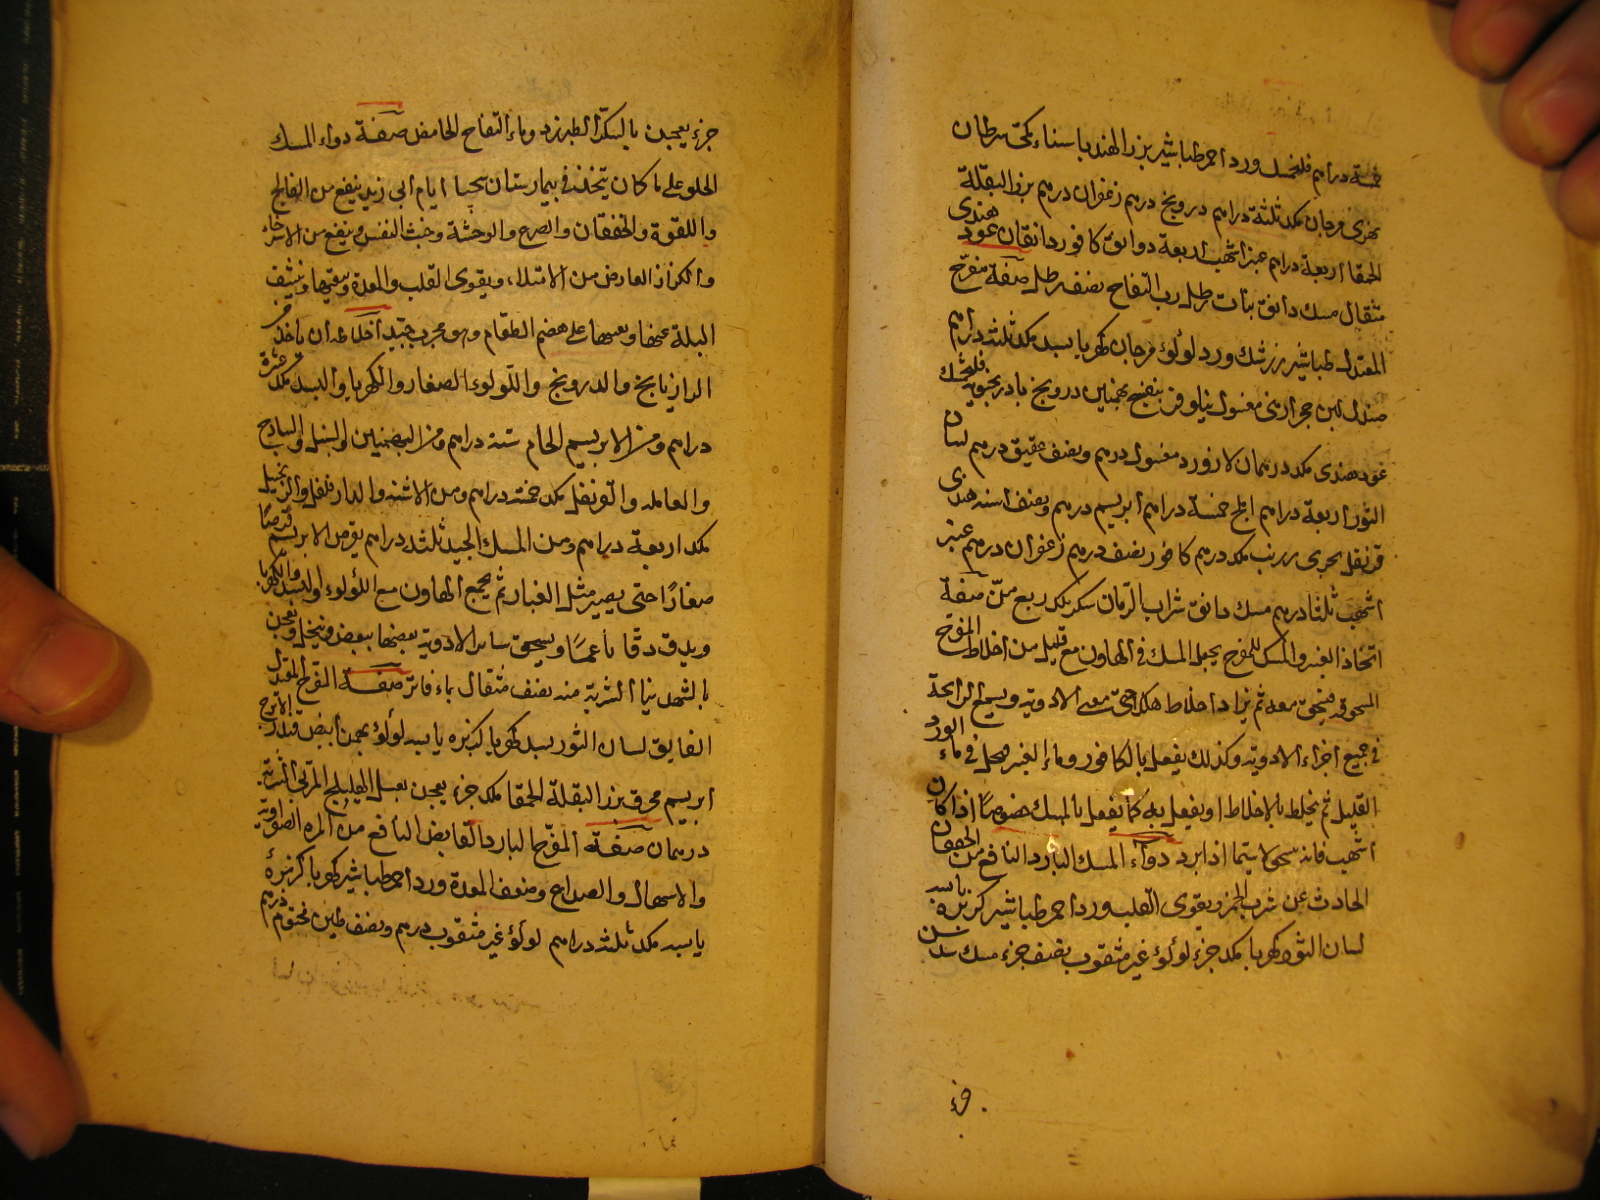 خمسة دراهم فلنجمشك ورد احمر طباشير بزر الهندبا سناء مكى سرطان
نهرى مرجان مكد ثلثة دراهم درونج درهم زعفران درهم بزر البقلة
الحمقا اربعة دراهم عنبر اشهب اربعة دوانق كافور دانقان عود هندى
مثقال مسك دانق نبات رطل رب التفاح نصف رطل صفة مفرح
المعتدل طباشير زرشك ورد لولؤ مرجان كهربا بسد مكد ثلثة دراهم
صندل ابيض حجر ارمنى مغسول نيلوفر بنفسج بهمنين درونج بادرنجبويه فلنجمشك
عود هندى مكد درهمان لازورد مغسول درهم ونصف عقيق درهم لسان
الثور اربعة دراهم املج خمسة دراهم ابريسم درهم ونصف اشنه هندى
قرنفل زرنب مكد درهم كافور نصف درهم زعفران درهم عنبر
اشهب ثلثا درهم مسك دانق شراب الرمان سكر مكد ربع من صفة
اتخاذ العنبر والمسك للمفرح يجعل المسك فى الهاون مع قليل من اخلاط المفرح
المسحوقه فيسحق معه ثم يزاد اخلاط هكذا حتى الادوية ويسع الرائحة
فى جميع اجزاء الادوية وكذلك يفعل بالكافور واما العنبر فيحل فى ماء الورد
القليل ثم يخلط بالاخلاط او يفعل به كما يفعل بالمسك خصوصًا اذا كان
اشهب فانه لا سيما اذا برد دواء المسك البارد النافع من الخفقان
الحادث عن شرب الخمر ويقوى القلب ورد احمر طباشير كزبره يابسه
لسان الثور كهربا مكد جزء لولؤ غير مثقوب نصف جزء مسك سدس
جزء
جزء يعجن بالسكر الطبرزد وماء التفاح الحامض صفة دواء المسك
الحلو على ما كان يتخذ فى بيمارستان ايام ابى زيد ينفع من الفالج
واللقوة والخفقان والصرع والوحشة وخبث النفس وينفع من الاسترخاء
والكزاز العارض من الامتلاء ويقوى القلب والمعدة وينقيها وينشف
البلة عنها ويعينها على هضم الطعام وهو مجرب جيد اخلاطه ان ياخذ من
الرازيانج والدرونج واللولوء الصغار والكهربا والبسد مكد عشرة
دراهم ومن الابريسم الخام ستة دراهم ومن البهمنين والسنبل والساذج
والقاقله والقرنفل مكد خمسة دراهم ومن الاشنه والدارفلفل والزنجبيل
مكد اربعة دراهم ومن المسك الجيد ثلثة دراهم يقرض الابريسم قرضًا
صغارًا حتى يصير مثل الغبار ثم يجمع الهاون مع اللؤلوء والبسد والكهربا
ويدق دقًا ناعمًا ويسحق سائر الادوية بعضها ببعض وينخل ويعجن
بالشهد نيا الشربة منه نصف مثقال بماء فاتر صفة المفرح المعتدل
الفايق لسان الثور بسد كهربا كزبره يابسه لولؤ بهمن ابيض قشر الاترج
ابريسم محرق بزر البقلة الحمقا مكد جزء يعجن بعسل الهليلج المربى الشربة
درهمان صفة المفرح البارد القابض النافع من المرة الصفراوية
والاسهال والصداع وضعف المعدة ورد احمر طباشير كهربا كزبرة
يابسه مكد ثلثة دراهم لولؤ غير مثقوب درهم ونصف طين مختوم درهم